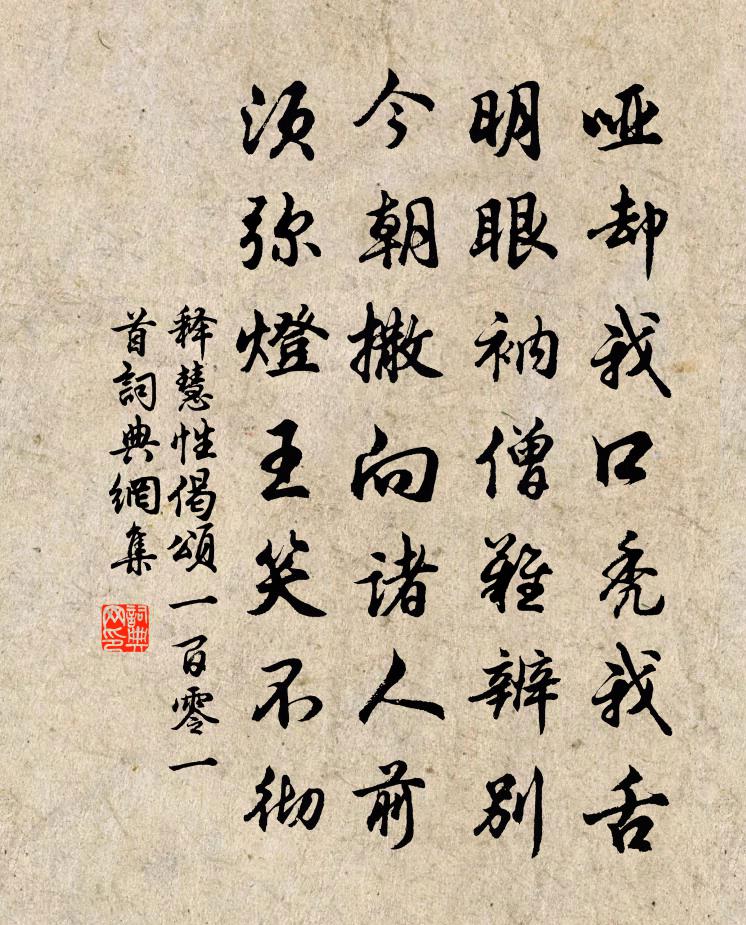 哑却我口秃我舌
明眼衲僧难辨别
今朝撒向诸人前
须弥燈王笑不彻
释慧性偈頌一百零一
首詞典網集
詞典
网印